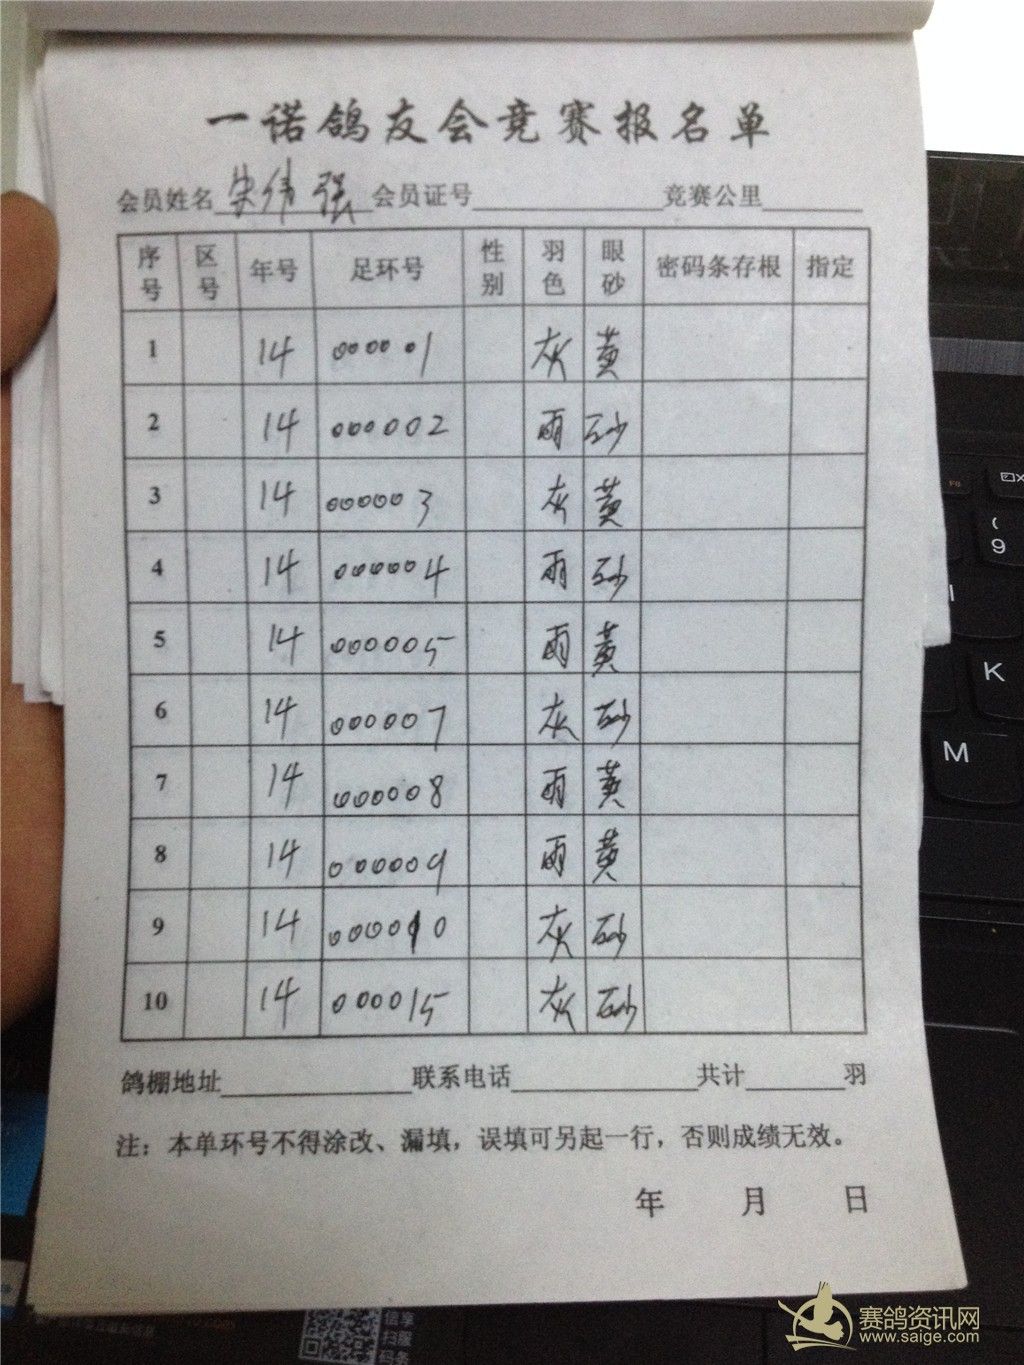 一诺鸽友会竞赛报名单
会员姓名 宋伟强 会员证号 竞赛公里
序号 区号 年号 足环号 性别 羽色 眼砂 密码条存根 指定
1 14 000001 灰 黄
2 14 000002 雨 砂
3 14 000003 灰 黄
4 14 000004 雨 砂
5 14 000005 雨 黄
6 14 000007 灰 砂
7 14 000008 雨 黄
8 14 000009 雨 黄
9 14 000010 灰 砂
10 14 000015 灰 砂
鸽棚地址 联系电话 共计 羽
注：本单环号不得涂改、漏填，误填可另起一行，否则成绩无效。
年 月 日
赛鸽资讯网
www.saige.com
F8
9
K
M